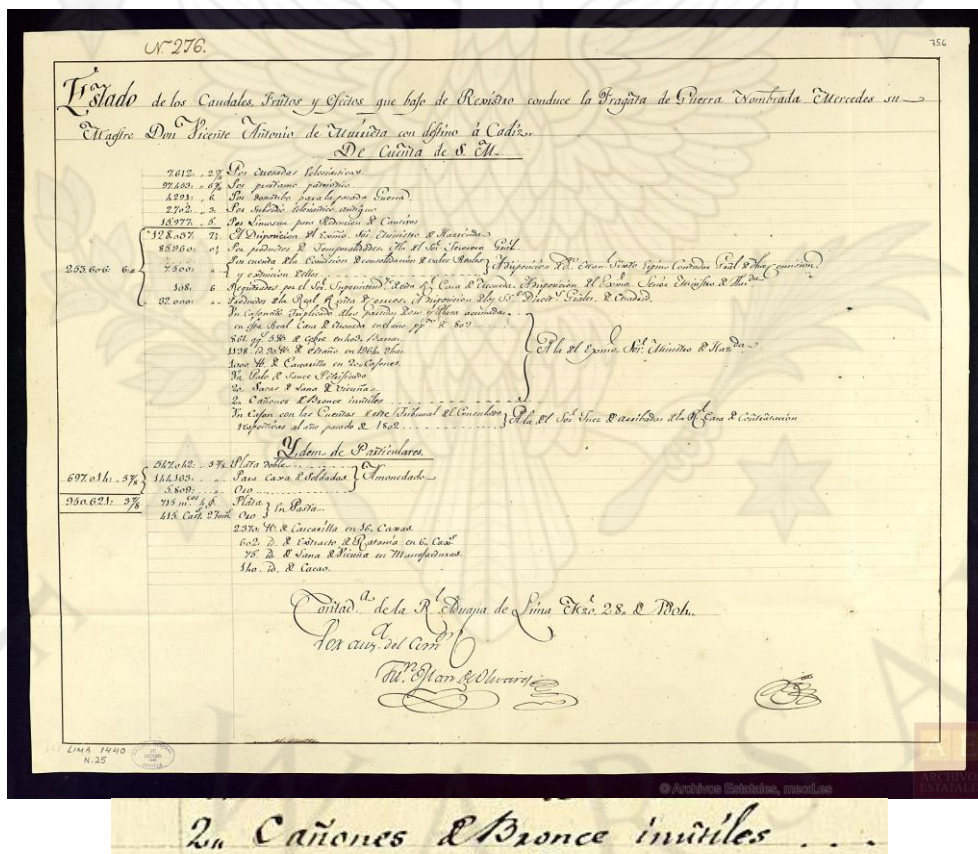 N. 276.
756
Estado de los Caudales, Frutos y Efectos que bajo de Rexistro conduce la Fragata de Guerra Nombrada Mercedes su
Maestro Don Vicente Antonio de Murrieta con destino à Cadiz.
De Cuenta de S. M.
7.612. 2⅞ Por
97.433. 6⅞ Por prestamo patriotico
4.291. 6. Por donatibo para la pasada Guerra.
2.702. 3. Por Subsidio eclesiastico antiguo
15.977. 5. Por Limosna para Redencion de Cautivos
128.037. 7½ A Disposicion del Exmo. Sor. Ministro de Hacienda
85.960. 0½ Por productos de Temporalidades. Yd. del Sor. Tesorero Gral
Por cuenta de la Comision de consolidacion de vales Reales
7.500. y extincion de ellos
253.606. 6
108. 6 Registrados por el Sor. Superintend.te de esta Rl. Casa de Moneda. A disposicion del Exmo. Señor Ministro de Haz.da
32.000. Productos de la Real Renta de Correos. A disposicion de los Sres. Direct.s Grales. de Madrid.
Un Caxoncito Triplicado de las partidas de oro y Plata acuñadas
en esta Real Casa de Moneda en el año pp.do de 803
861 qq.s de Cobre en Barras
1138. id. de estaño en
1000. de Cascarilla en 20. Caxones.
Un Palo de Sauce Petrificado
20. Sacas de Lana de Vicuña
2. Cañones de Bronce inutiles
A la del Exmo. Sor. Ministro de Haz.da
Un Caxon con las Cuentas de este Tribunal del Consulado
respectivas al año pasado de 1802
A la del Sor. Juez de arribadas de la Rl. Casa de Contratacion
Ydem de Particulares.
547.042. 3⅞ Plata doble
697.014. 3⅞ 144.163. Para Caxa de Soldadas Amonedado
5.809. Oro
950.621. 3⅞ 715 m.cos 4 Plata
En Pasta
415. Cast. 2 Oro
2.373. de Cascarilla en 16. Caxas.
602. id. de Extracto de Ratania en 6. Cax.s
76. id. de Lana de Vicuña en Manufacturas.
140. id. de Cacao.
Contad.a de la Rl. Aduana de Lima Mzo. 28. de 1804.
Por aus.a del Cont.r
Olivares
LIMA 1440
N.25
© Archivos Estatales, mecd.es
ARCHIVOS
ESTATALES
2. Cañones de Bronce inutiles . . .